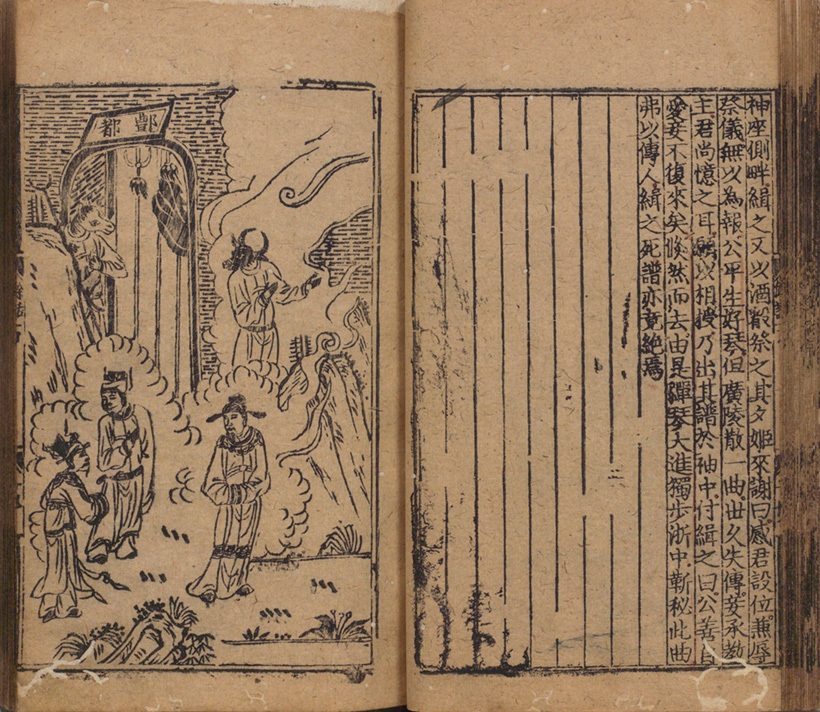 神座側畔緝之又以酒殽祭之其夕姬來謝曰感君設位兼辱
祭儀無以為報公平生好琴但廣陵散一曲世久失傳妾承教
主君尚憶之耳願以相授乃出其譜於袖中付緝之曰公善自
愛妾不復來矣倏然而去由是彈琴大進獨步浙中靳秘此曲
弗以傳人緝之死譜亦竟絕焉
酆都